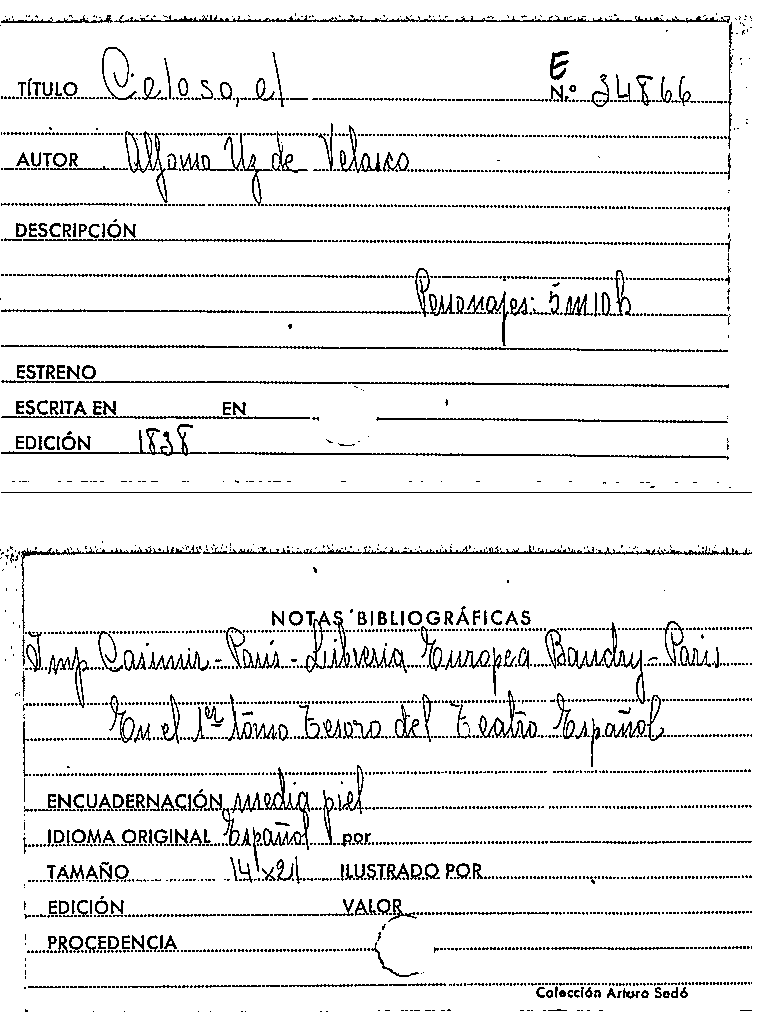 TÍTULO Celoso, el E
N.º 34866
AUTOR Alfonso Uz de Velasco
DESCRIPCIÓN
Personajes: 5 m 10 h
ESTRENO
ESCRITA EN EN
EDICIÓN 1838
NOTAS BIBLIOGRÁFICAS
Imp Casimir - París - Librería Europea Baudry - París
En el 1er tomo Tesoro del Teatro Español
ENCUADERNACIÓN media piel
IDIOMA ORIGINAL Español por
TAMAÑO 14 x 21 ILUSTRADO POR
EDICIÓN VALOR
PROCEDENCIA
Colección Arturo Sedó